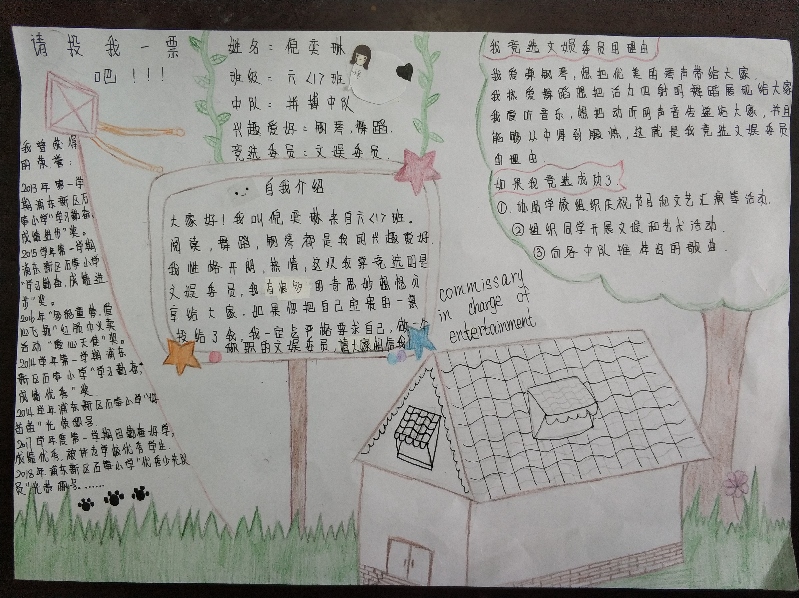 请投我一票
吧！！！
姓名：倪奕琳
班级：六<1>班
中队：拼搏中队
兴趣爱好：钢琴、舞蹈.
竞选委员：文娱委员.
我曾获得
的荣誉：
2013年第一学
期浦东新区石
笋小学“学习勤奋，
成绩进步”奖。
2015学年第一学期
浦东新区石笋小学
“学习勤奋，成绩进
步”奖。
心飞翔”红领巾义卖
活动“爱心天使”奖。
2014学年第一学期浦东
新区石笋小学“学习勤奋，
成绩优秀”奖
2014学年浦东新区石笋小学“好
苗苗”光荣称号.
2017学年度第一学期因勤奋好学，
成绩优秀，被评为学做优秀学生.
2018年浦东新区石笋小学“优秀少先队
员”光荣称号.......
自我介绍
大家好！我叫倪奕琳来自六<1>班。
阅读，舞蹈，钢琴都是我的兴趣爱好.
我性格开朗，热情，这次我算竞选的是
文娱委员，我有足够的音乐妙趣想分
享给大家.如果您把自己宝贵的一票
投给了我，我一定会严格要求自己，做一名
称职的文娱委员，请大家相信我
commissary
in charge of
entertainment
我竞选文娱委员的理由
我爱弹钢琴，想把优美的琴声带给大家.
我热爱舞蹈想把活力四射的舞蹈展现给大家
我爱听音乐，想把动听的声音传递给大家，并且
能够从中得到锻炼，这就是我竞选文娱委员
的理由.
如果我竞选成功了：
①.协助学校组织庆祝节目和文艺汇演等活动.
②组织同学开展文娱和艺术活动.
③向各中队推荐好的歌曲.